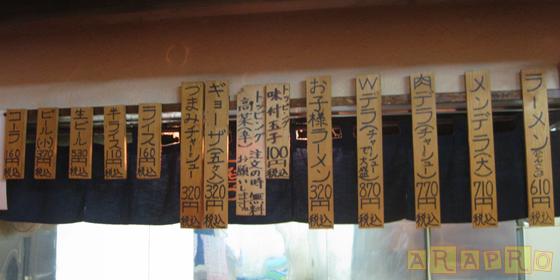 ラーメン 610円 税込
メンデラ(大) 710円 税込
肉デラ(チャーシュー) 770円 税込
Wデラ 870円 税込
お子様ラーメン 320円 税込
トッピング 味付玉子 100円 税込
トッピング 高菜(辛) 注文の時 無料 お願いします
ギョーザ(五ケ) 320円 税込
つまみチャーシュー 320円 税込
ライス 160円 税込
半ライス 110円 税込
生ビール 530円 税込
ビール(小) 320円 税込
コーラ 160円 税込
ARAPRO